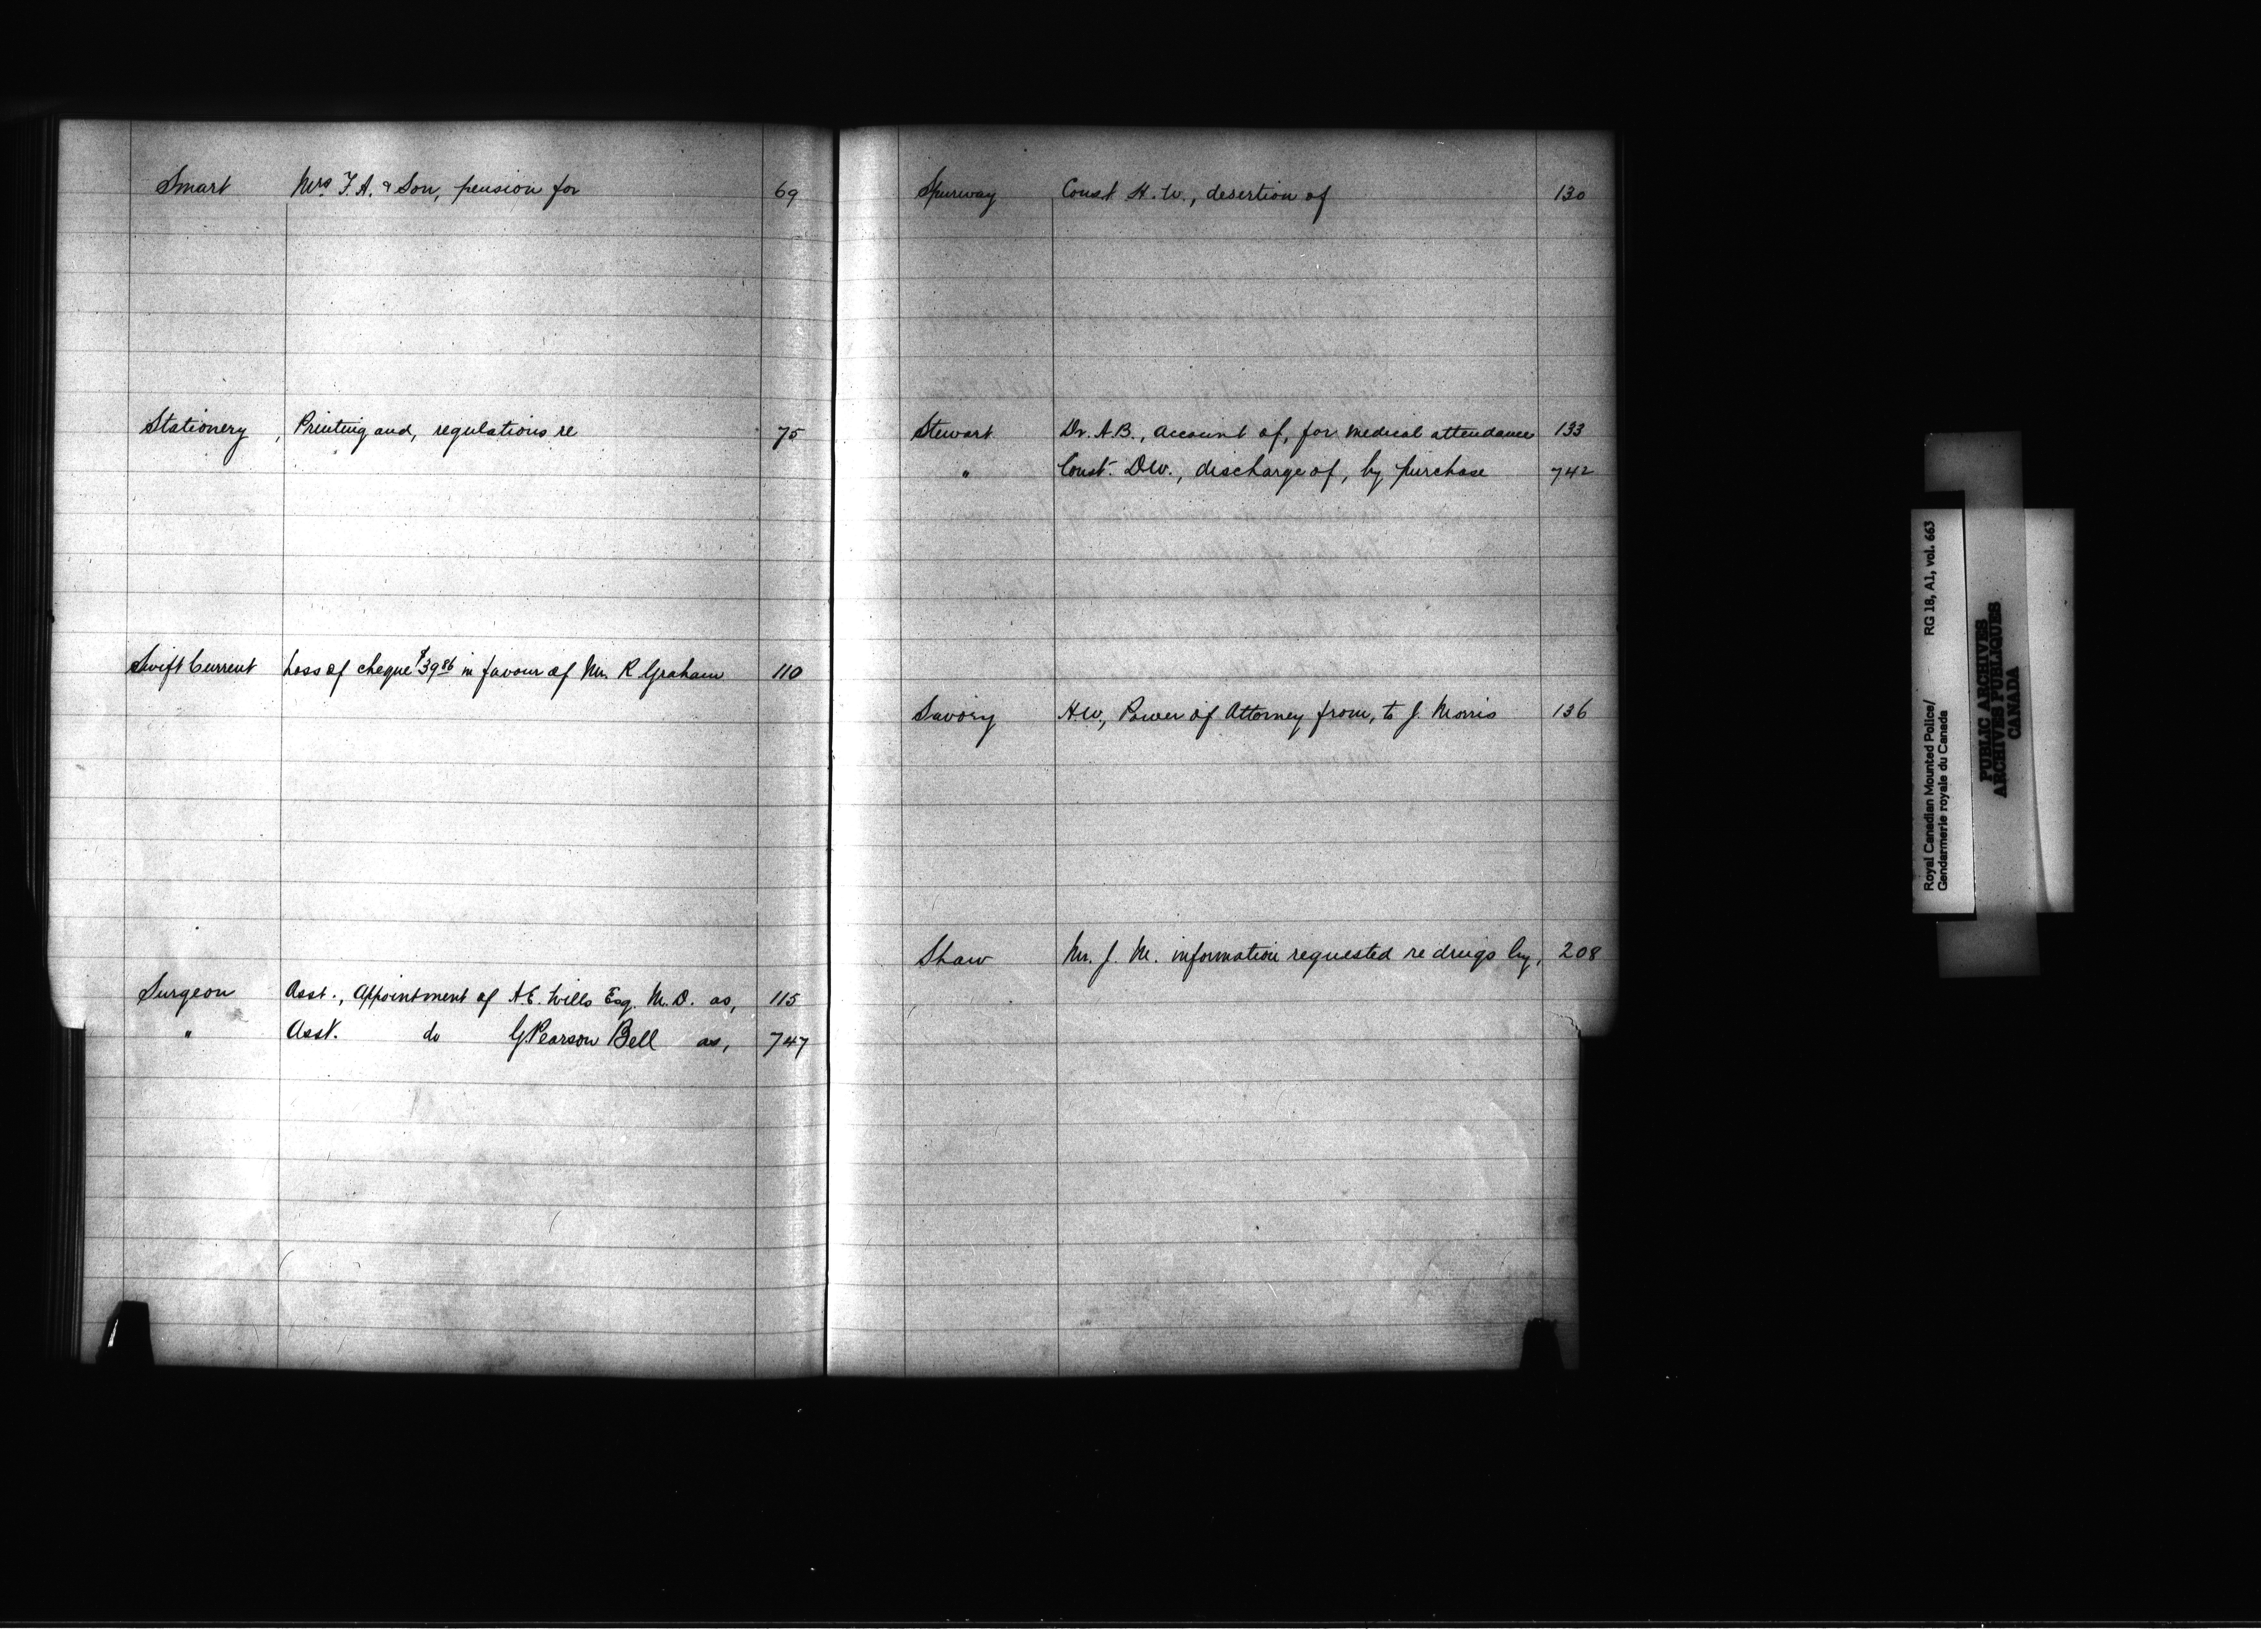 Smart Mrs F. A. & Son, pension for 69
Stationery, Printing and, regulations re 75
Swift Current Loss of cheque $39.86 in favour of Mr. R Graham 110
Surgeon Asst., Appointment of A.E. Wills Esq. M.D. as, 115
" Asst. do G. Pearson Bell as, 747
Spurway Const H. W., desertion of 130
Stewart Dr. A.B., account of, for medical attendance 133
" Const. D.W., discharge of, by purchase 742
Savory H.W., Power of Attorney from, to J. Morris 136
Shaw Mr. J. M. information requested re drugs by, 208
Royal Canadian Mounted Police/
Gendarmerie royale du Canada
RG 18, A1, vol. 663
PUBLIC ARCHIVES
ARCHIVES PUBLIQUES
CANADA